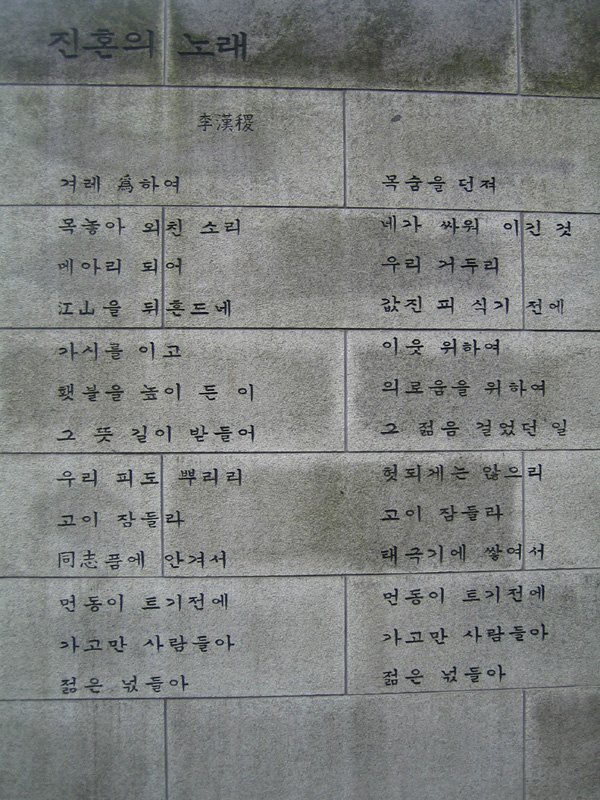 진혼의 노래
李漢稷
겨레 爲하여
목놓아 외친 소리
메아리 되어
江山을 뒤흔드네
가시를 이고
횃불을 높이 든 이
그 뜻 길이 받들어
우리 피도 뿌리리
고이 잠들라
同志품에 안겨서
먼동이 트기전에
가고만 사람들아
젊은 넋들아
목숨을 던져
네가 싸워 이긴 것
우리 거두리
값진 피 식기 전에
이웃 위하여
의로움을 위하여
그 젊음 걸었던 일
헛되게는 않으리
고이 잠들라
태극기에 쌓여서
먼동이 트기전에
가고만 사람들아
젊은 넋들아